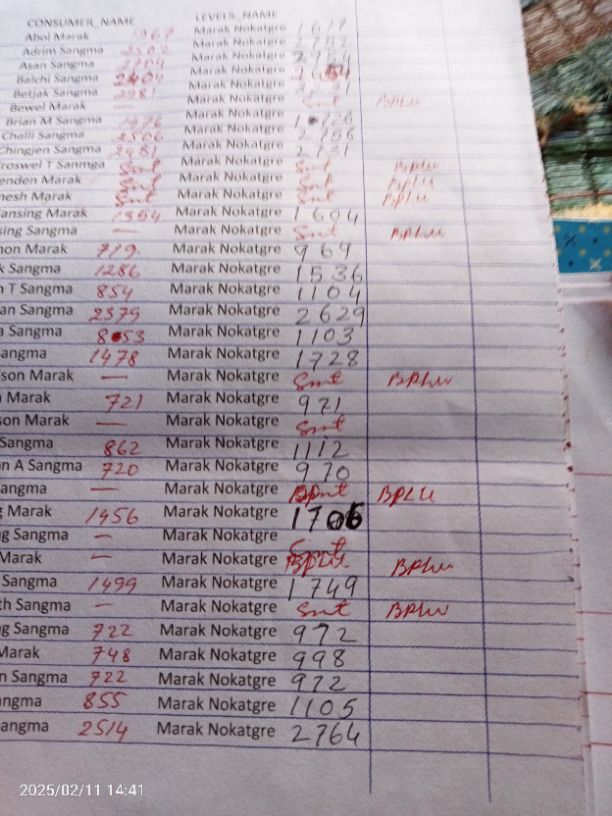 CONSUMER_NAME LEVEL5_NAME
Abol Marak 1367 Marak Nokatgre 1617
Adrim Sangma 2502 Marak Nokatgre
Asan Sangma 2704 Marak Nokatgre
Balchi Sangma 2404 Marak Nokatgre 2654
Betjak Sangma 2981 Marak Nokatgre
Bewel Marak — Marak Nokatgre Smt BPLU
Brian M Sangma Marak Nokatgre 1726
Challi Sangma 2506 Marak Nokatgre 2756
Chingjen Sangma 2481 Marak Nokatgre 2731
roswel T Sanmga Smt Marak Nokatgre Smt BPLU
enden Marak Smt Marak Nokatgre Smt BPLU
nesh Marak Smt Marak Nokatgre Smt BPLU
ansing Marak 1354 Marak Nokatgre 1604
sing Sangma — Marak Nokatgre Smt BPLU
non Marak 719 Marak Nokatgre 969
k Sangma 1286 Marak Nokatgre 1536
n T Sangma 854 Marak Nokatgre 1104
an Sangma 2379 Marak Nokatgre 2629
a Sangma 853 Marak Nokatgre 1103
angma 1478 Marak Nokatgre 1728
son Marak — Marak Nokatgre Smt BPLU
Marak 721 Marak Nokatgre 971
son Marak — Marak Nokatgre Smt
Sangma 862 Marak Nokatgre 1112
n A Sangma 720 Marak Nokatgre 970
angma — Marak Nokatgre BPLU
g Marak 1456 Marak Nokatgre 1706
ng Sangma — Marak Nokatgre Smt
Marak — Marak Nokatgre BPLU BPLU
Sangma 1499 Marak Nokatgre 1749
th Sangma — Marak Nokatgre Smt BPLU
ng Sangma 722 Marak Nokatgre 972
Marak 748 Marak Nokatgre 998
n Sangma 722 Marak Nokatgre 972
angma 855 Marak Nokatgre 1105
angma 2514 Marak Nokatgre 2764
2025/02/11 14:41